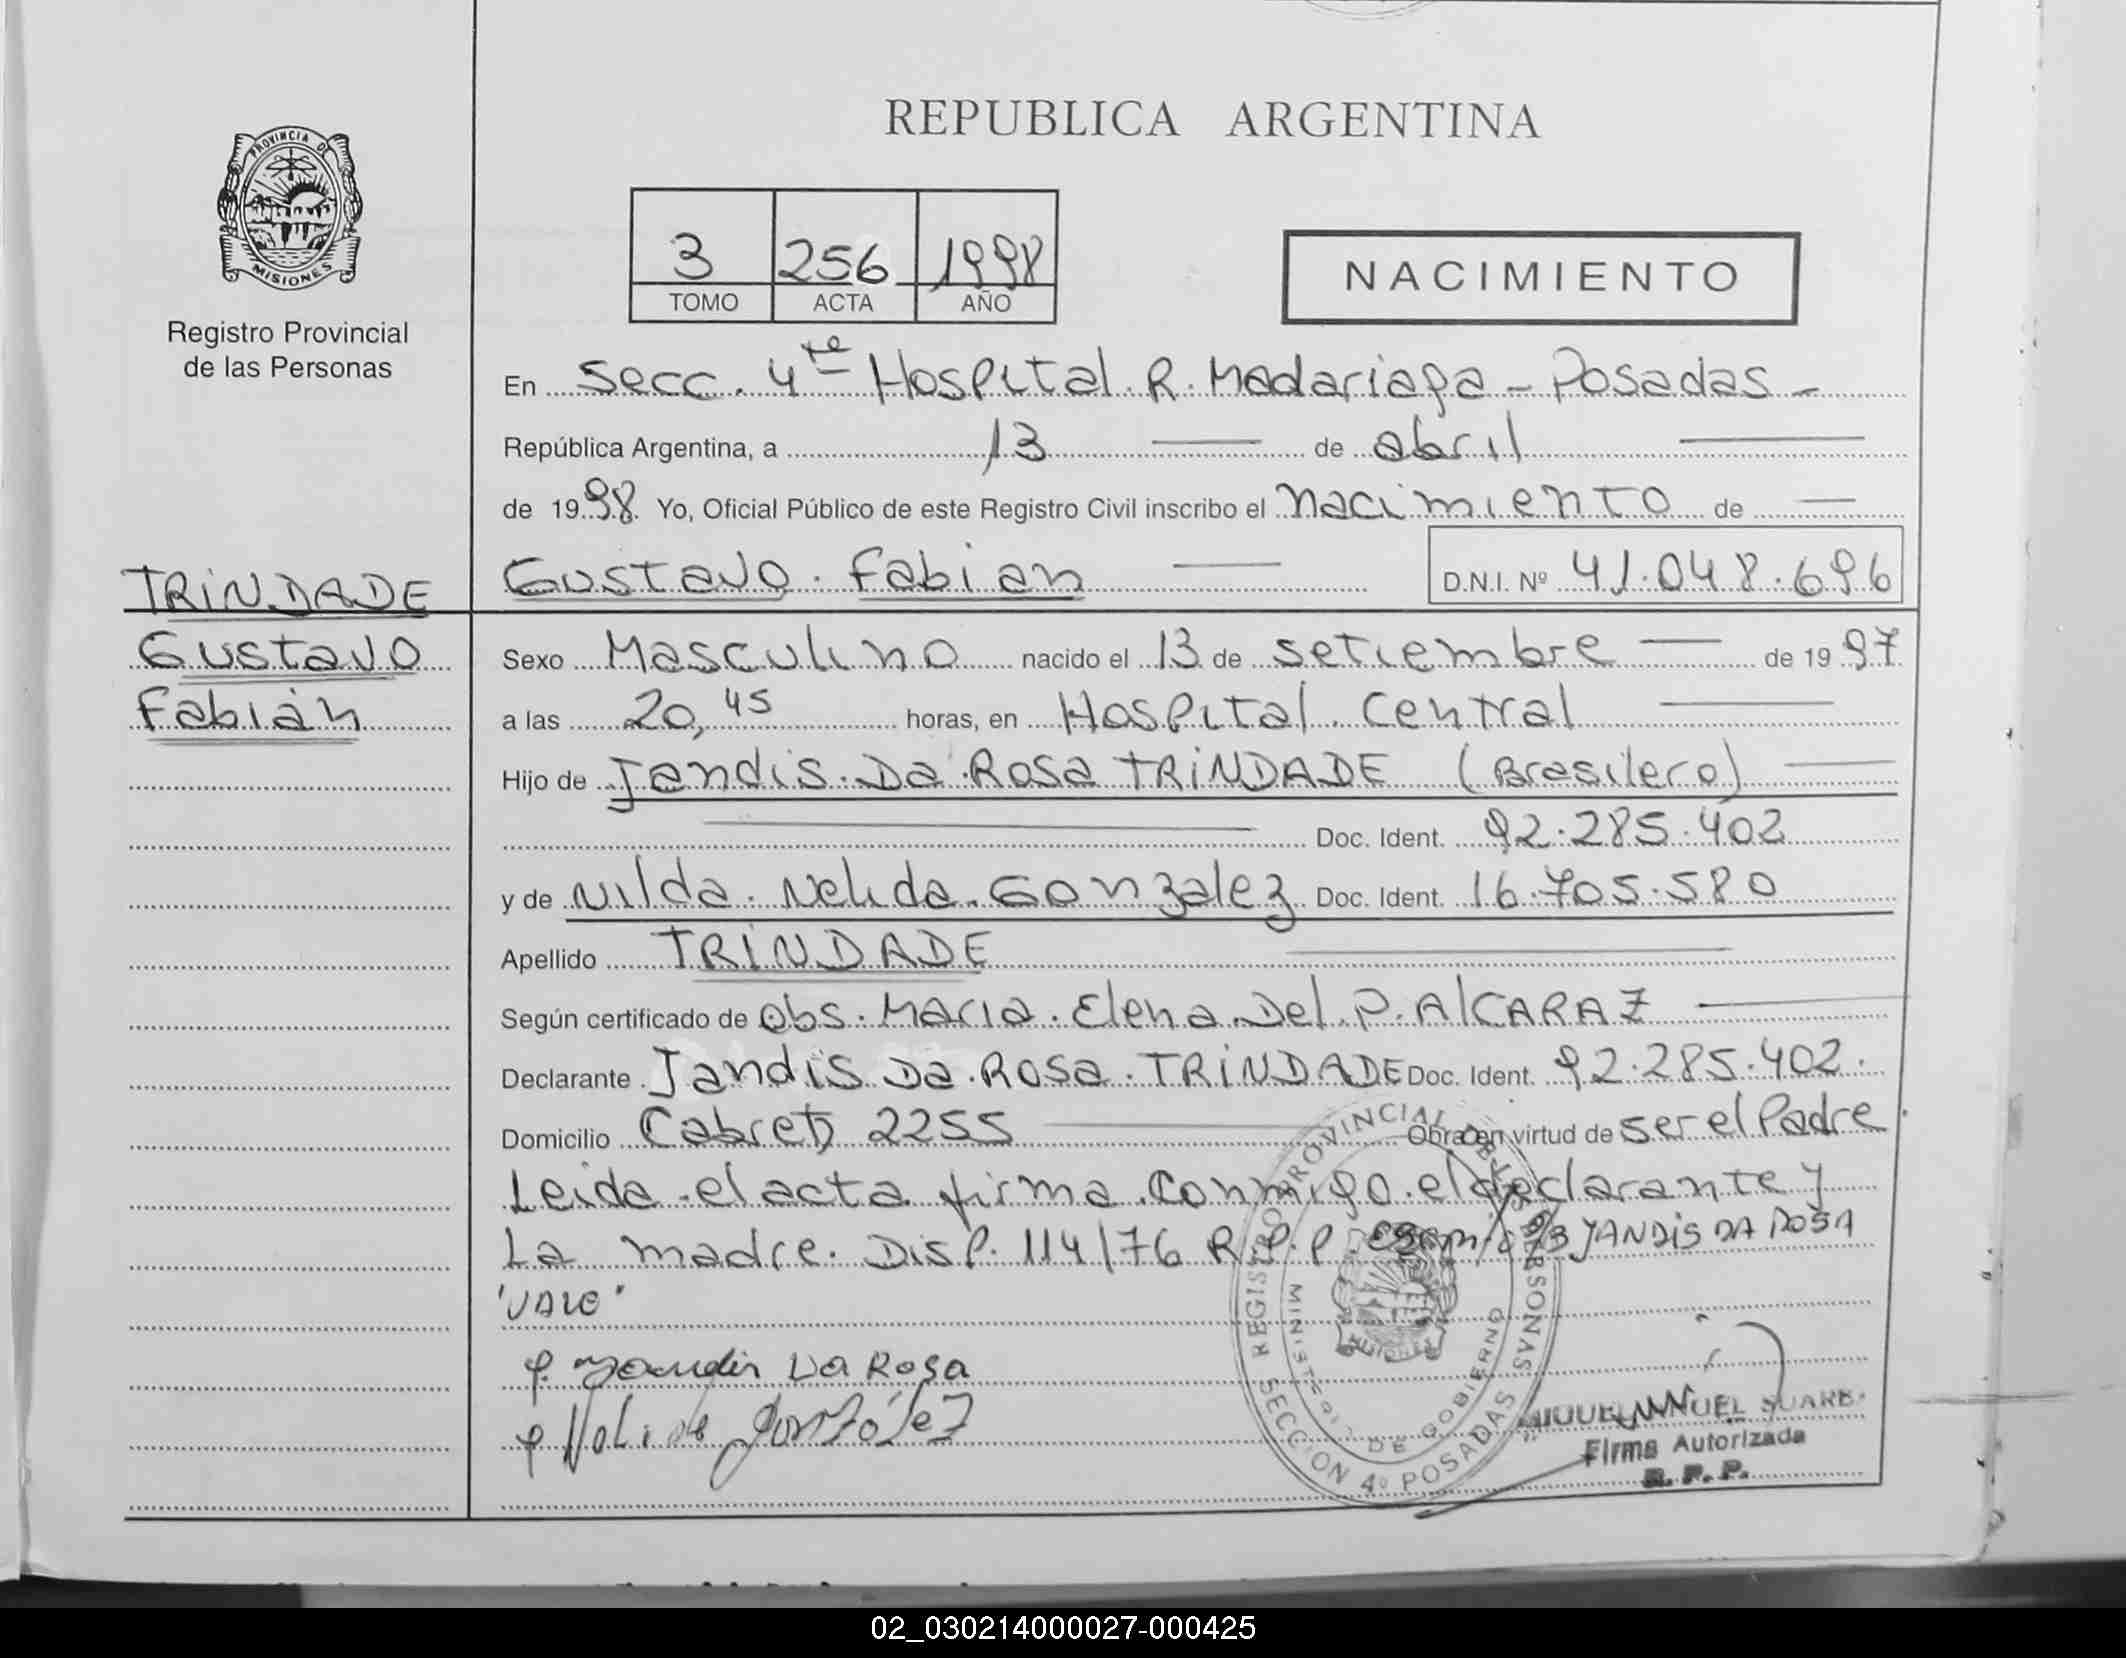 REPUBLICA ARGENTINA
PROVINCIA DE
MISIONES
Registro Provincial
de las Personas
3 256 1998
TOMO ACTA AÑO
NACIMIENTO
En Secc. 4ta Hospital R. Madariaga - Posadas -
República Argentina, a 13 de abril
de 1998 Yo, Oficial Público de este Registro Civil inscribo el nacimiento de
TRINDADE
Gustavo Fabian D.N.I. Nº 41.048.696
Gustavo
Fabián
Sexo Masculino nacido el 13 de setiembre de 1997
a las 20,45 horas, en Hospital Central
Hijo de Jandis Da Rosa TRINDADE (Brasilero)
Doc. Ident. 92.285.402
y de Nilda Nelida Gonzalez Doc. Ident. 16.705.580
Apellido TRINDADE
Según certificado de Obs. Maria Elena Del P. AlCARAZ
Declarante Jandis Da Rosa TRINDADE Doc. Ident. 92.285.402.
Domicilio 2255 Obra en virtud de ser el Padre
Leida el acta firma conmigo el declarante y
La madre. Disp. 114/76 R.P.P. JANDIS DA ROSA
"VALE"
Jandis Da Rosa
González
REGISTRO PROVINCIAL DE LAS PERSONAS
SECCION 4º POSADAS
MINISTERIO DE GOBIERNO
Firma Autorizada
R. P. P.
02_030214000027-000425